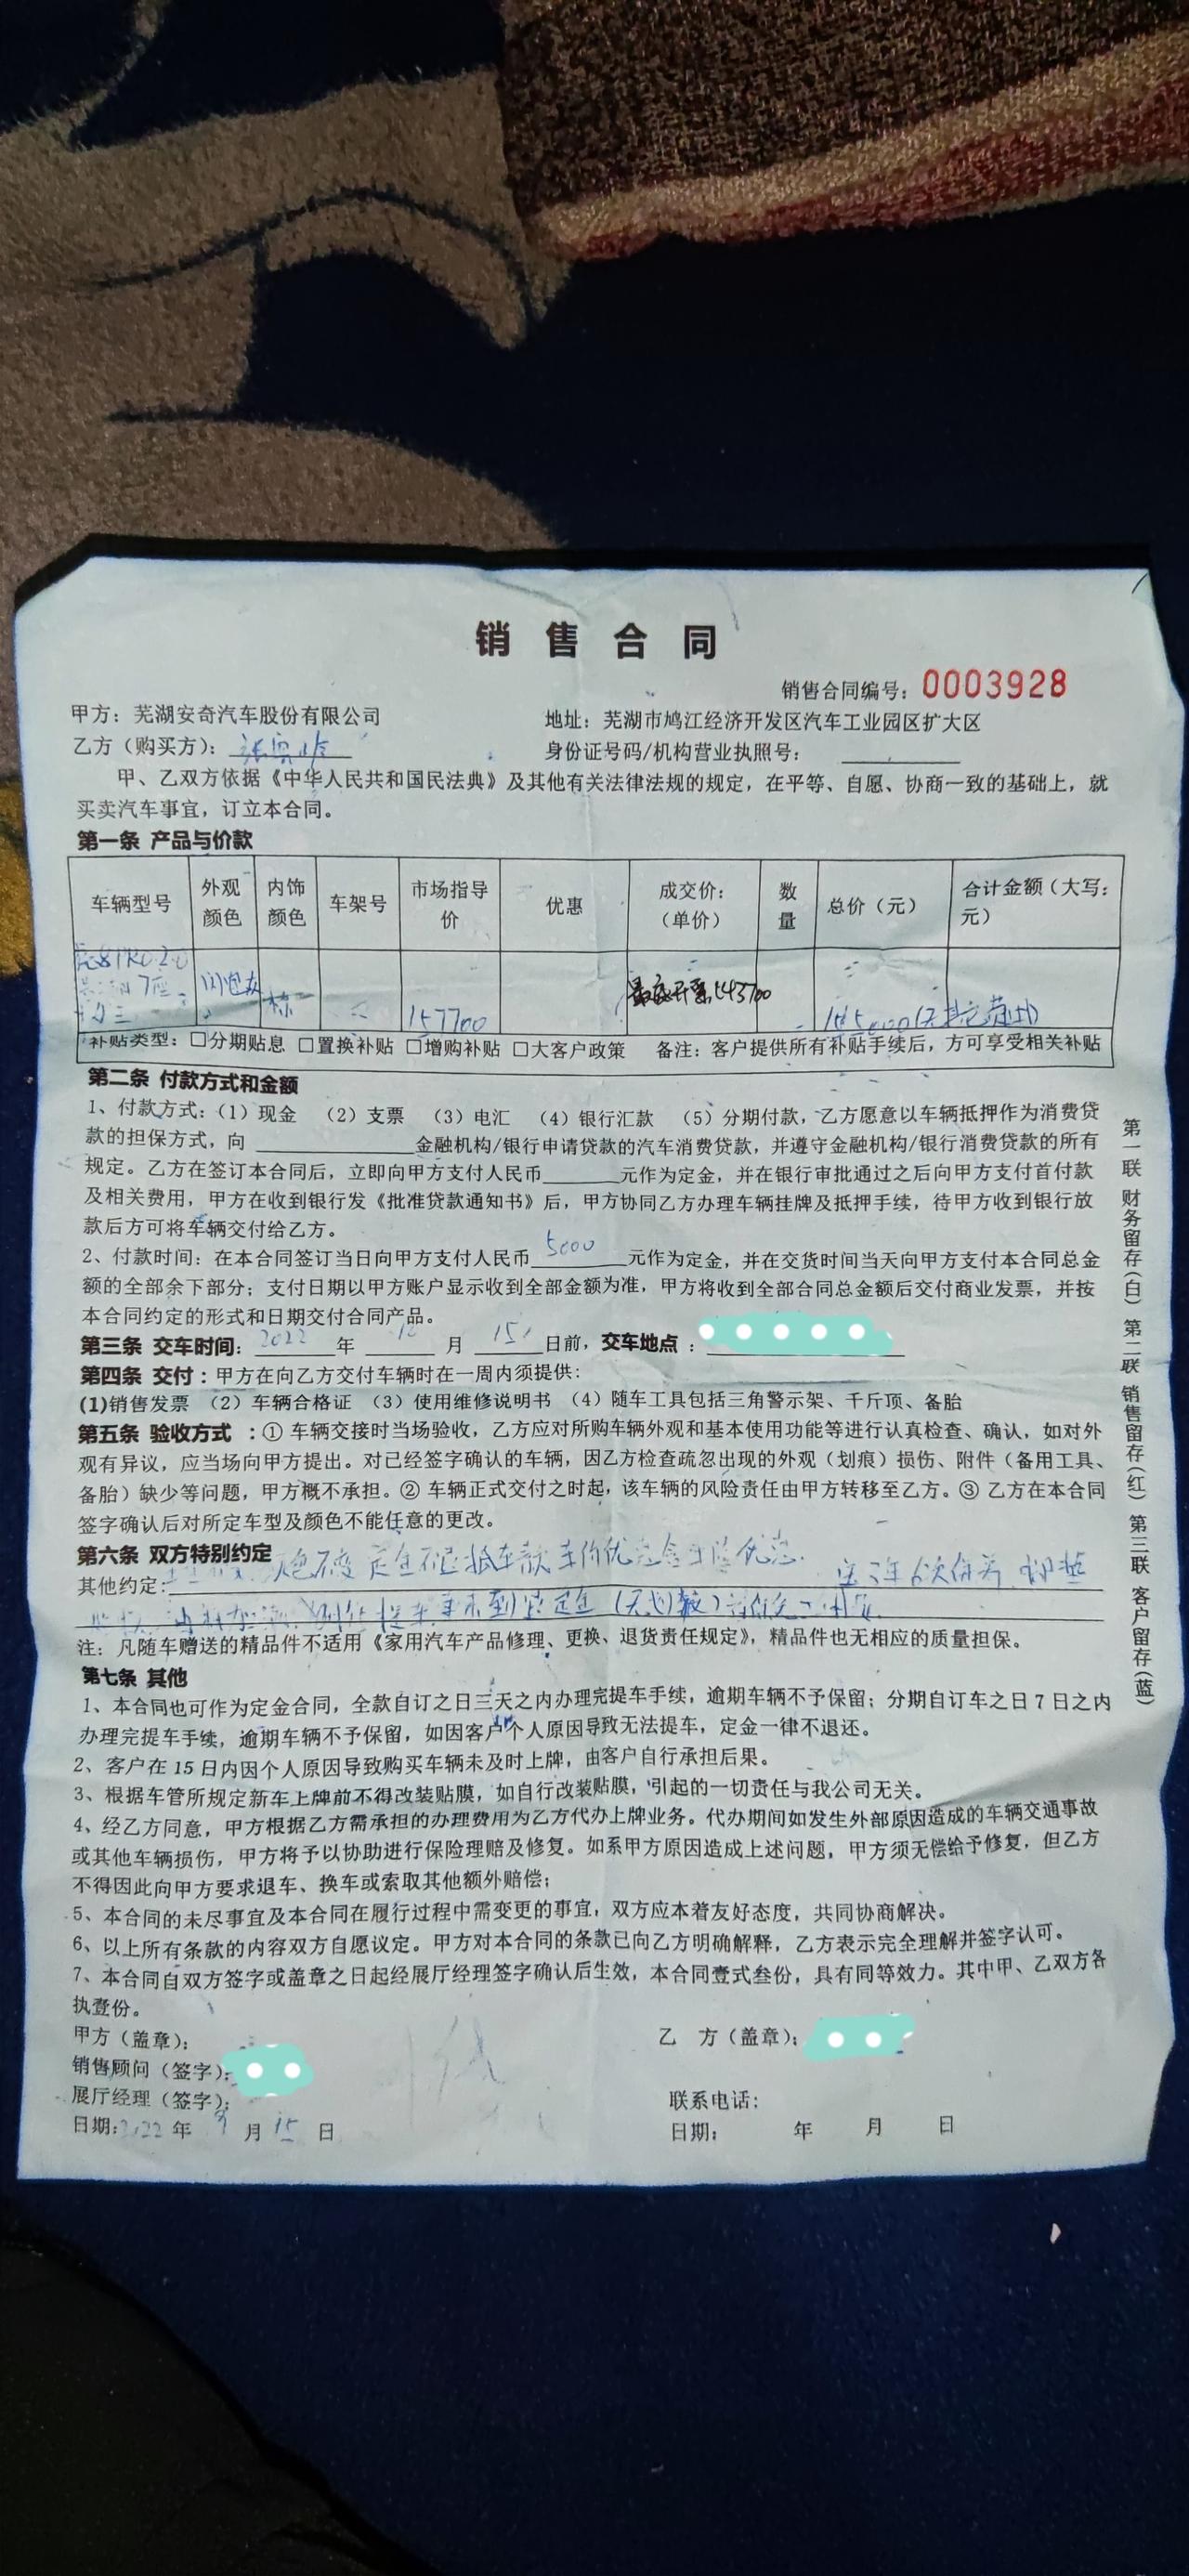 销售合同
销售合同编号：0003928
甲方：芜湖安奇汽车股份有限公司 地址：芜湖市鸠江经济开发区汽车工业园区扩大区
乙方（购买方）： 身份证号码/机构营业执照号：
甲、乙双方依据《中华人民共和国民法典》及其他有关法律法规的规定，在平等、自愿、协商一致的基础上，就
买卖汽车事宜，订立本合同。
第一条 产品与价款
车辆型号 外观颜色 内饰颜色 车架号 市场指导价 优惠 成交价：（单价） 数量 总价（元） 合计金额（大写：元）
7座 157700
补贴类型：□分期贴息 □置换补贴 □增购补贴 □大客户政策 备注：客户提供所有补贴手续后，方可享受相关补贴
第二条 付款方式和金额
1、付款方式：（1）现金 （2）支票 （3）电汇 （4）银行汇款 （5）分期付款，乙方愿意以车辆抵押作为消费贷
款的担保方式，向 金融机构/银行申请贷款的汽车消费贷款，并遵守金融机构/银行消费贷款的所有
规定。乙方在签订本合同后，立即向甲方支付人民币 元作为定金，并在银行审批通过之后向甲方支付首付款
及相关费用，甲方在收到银行发《批准贷款通知书》后，甲方协同乙方办理车辆挂牌及抵押手续，待甲方收到银行放
款后方可将车辆交付给乙方。
2、付款时间：在本合同签订当日向甲方支付人民币 5000 元作为定金，并在交货时间当天向甲方支付本合同总金
额的全部余下部分；支付日期以甲方账户显示收到全部金额为准，甲方将收到全部合同总金额后交付商业发票，并按
本合同约定的形式和日期交付合同产品。
第三条 交车时间：2022 年 12 月 15 日前，交车地点：
第四条 交付：甲方在向乙方交付车辆时在一周内须提供：
(1)销售发票 （2）车辆合格证 （3）使用维修说明书 （4）随车工具包括三角警示架、千斤顶、备胎
第五条 验收方式 ：① 车辆交接时当场验收，乙方应对所购车辆外观和基本使用功能等进行认真检查、确认，如对外
观有异议，应当场向甲方提出。对已经签字确认的车辆，因乙方检查疏忽出现的外观（划痕）损伤、附件（备用工具、
备胎）缺少等问题，甲方概不承担。② 车辆正式交付之时起，该车辆的风险责任由甲方转移至乙方。③ 乙方在本合同
签字确认后对所定车型及颜色不能任意的更改。
第六条 双方特别约定
定金不退抵车款
其他约定：
注：凡随车赠送的精品件不适用《家用汽车产品修理、更换、退货责任规定》，精品件也无相应的质量担保。
第七条 其他
1、本合同也可作为定金合同，全款自订之日三天之内办理完提车手续，逾期车辆不予保留；分期自订车之日 7 日之内
办理完提车手续，逾期车辆不予保留，如因客户个人原因导致无法提车，定金一律不退还。
2、客户在 15 日内因个人原因导致购买车辆未及时上牌，由客户自行承担后果。
3、根据车管所规定新车上牌前不得改装贴膜，如自行改装贴膜，引起的一切责任与我公司无关。
4、经乙方同意，甲方根据乙方需承担的办理费用为乙方代办上牌业务。代办期间如发生外部原因造成的车辆交通事故
或其他车辆损伤，甲方将予以协助进行保险理赔及修复。如系甲方原因造成上述问题，甲方须无偿给予修复，但乙方
不得因此向甲方要求退车、换车或索取其他额外赔偿；
5、本合同的未尽事宜及本合同在履行过程中需变更的事宜，双方应本着友好态度，共同协商解决。
6、以上所有条款的内容双方自愿议定。甲方对本合同的条款已向乙方明确解释，乙方表示完全理解并签字认可。
7、本合同自双方签字或盖章之日起经展厅经理签字确认后生效，本合同壹式叁份，具有同等效力。其中甲、乙双方各
执壹份。
甲方（盖章）： 乙 方（盖章）：
销售顾问（签字）：
展厅经理（签字）： 联系电话：
日期：2022 年 9 月 15 日 日期： 年 月 日
第一联 财务留存（白） 第二联 销售留存（红） 第三联 客户留存（蓝）